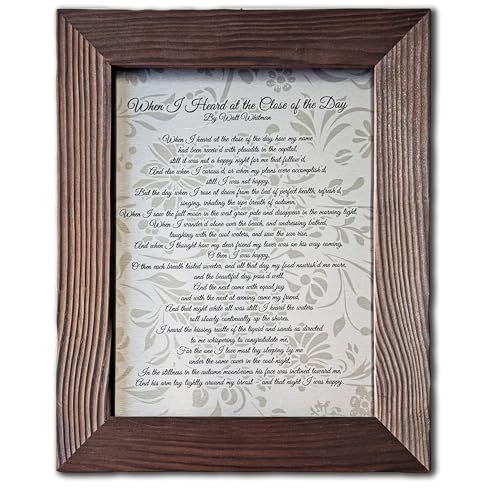 When I Heard at the Close of the Day
By Walt Whitman
When I heard at the close of the day how my name
had been receiv'd with plaudits in the capitol,
still it was not a happy night for me that follow'd,
And else when I carous'd, or when my plans were accomplish'd,
still I was not happy,
But the day when I rose at dawn from the bed of perfect health, refresh'd,
singing, inhaling the ripe breath of autumn,
When I saw the full moon in the west grow pale and disappear in the morning light,
When I wander'd alone over the beach, and undressing bathed,
laughing with the cool waters, and saw the sun rise,
And when I thought how my dear friend my lover was on his way coming,
O then I was happy,
O then each breath tasted sweeter, and all that day my food nourish'd me more,
and the beautiful day pass'd well,
And the next came with equal joy
and with the next at evening came my friend,
And that night while all was still I heard the waters
roll slowly continually up the shores,
I heard the hissing rustle of the liquid and sands as directed
to me whispering to congratulate me,
For the one I love most lay sleeping by me
under the same cover in the cool night,
In the stillness in the autumn moonbeams his face was inclined toward me,
And his arm lay lightly around my breast - and that night I was happy.